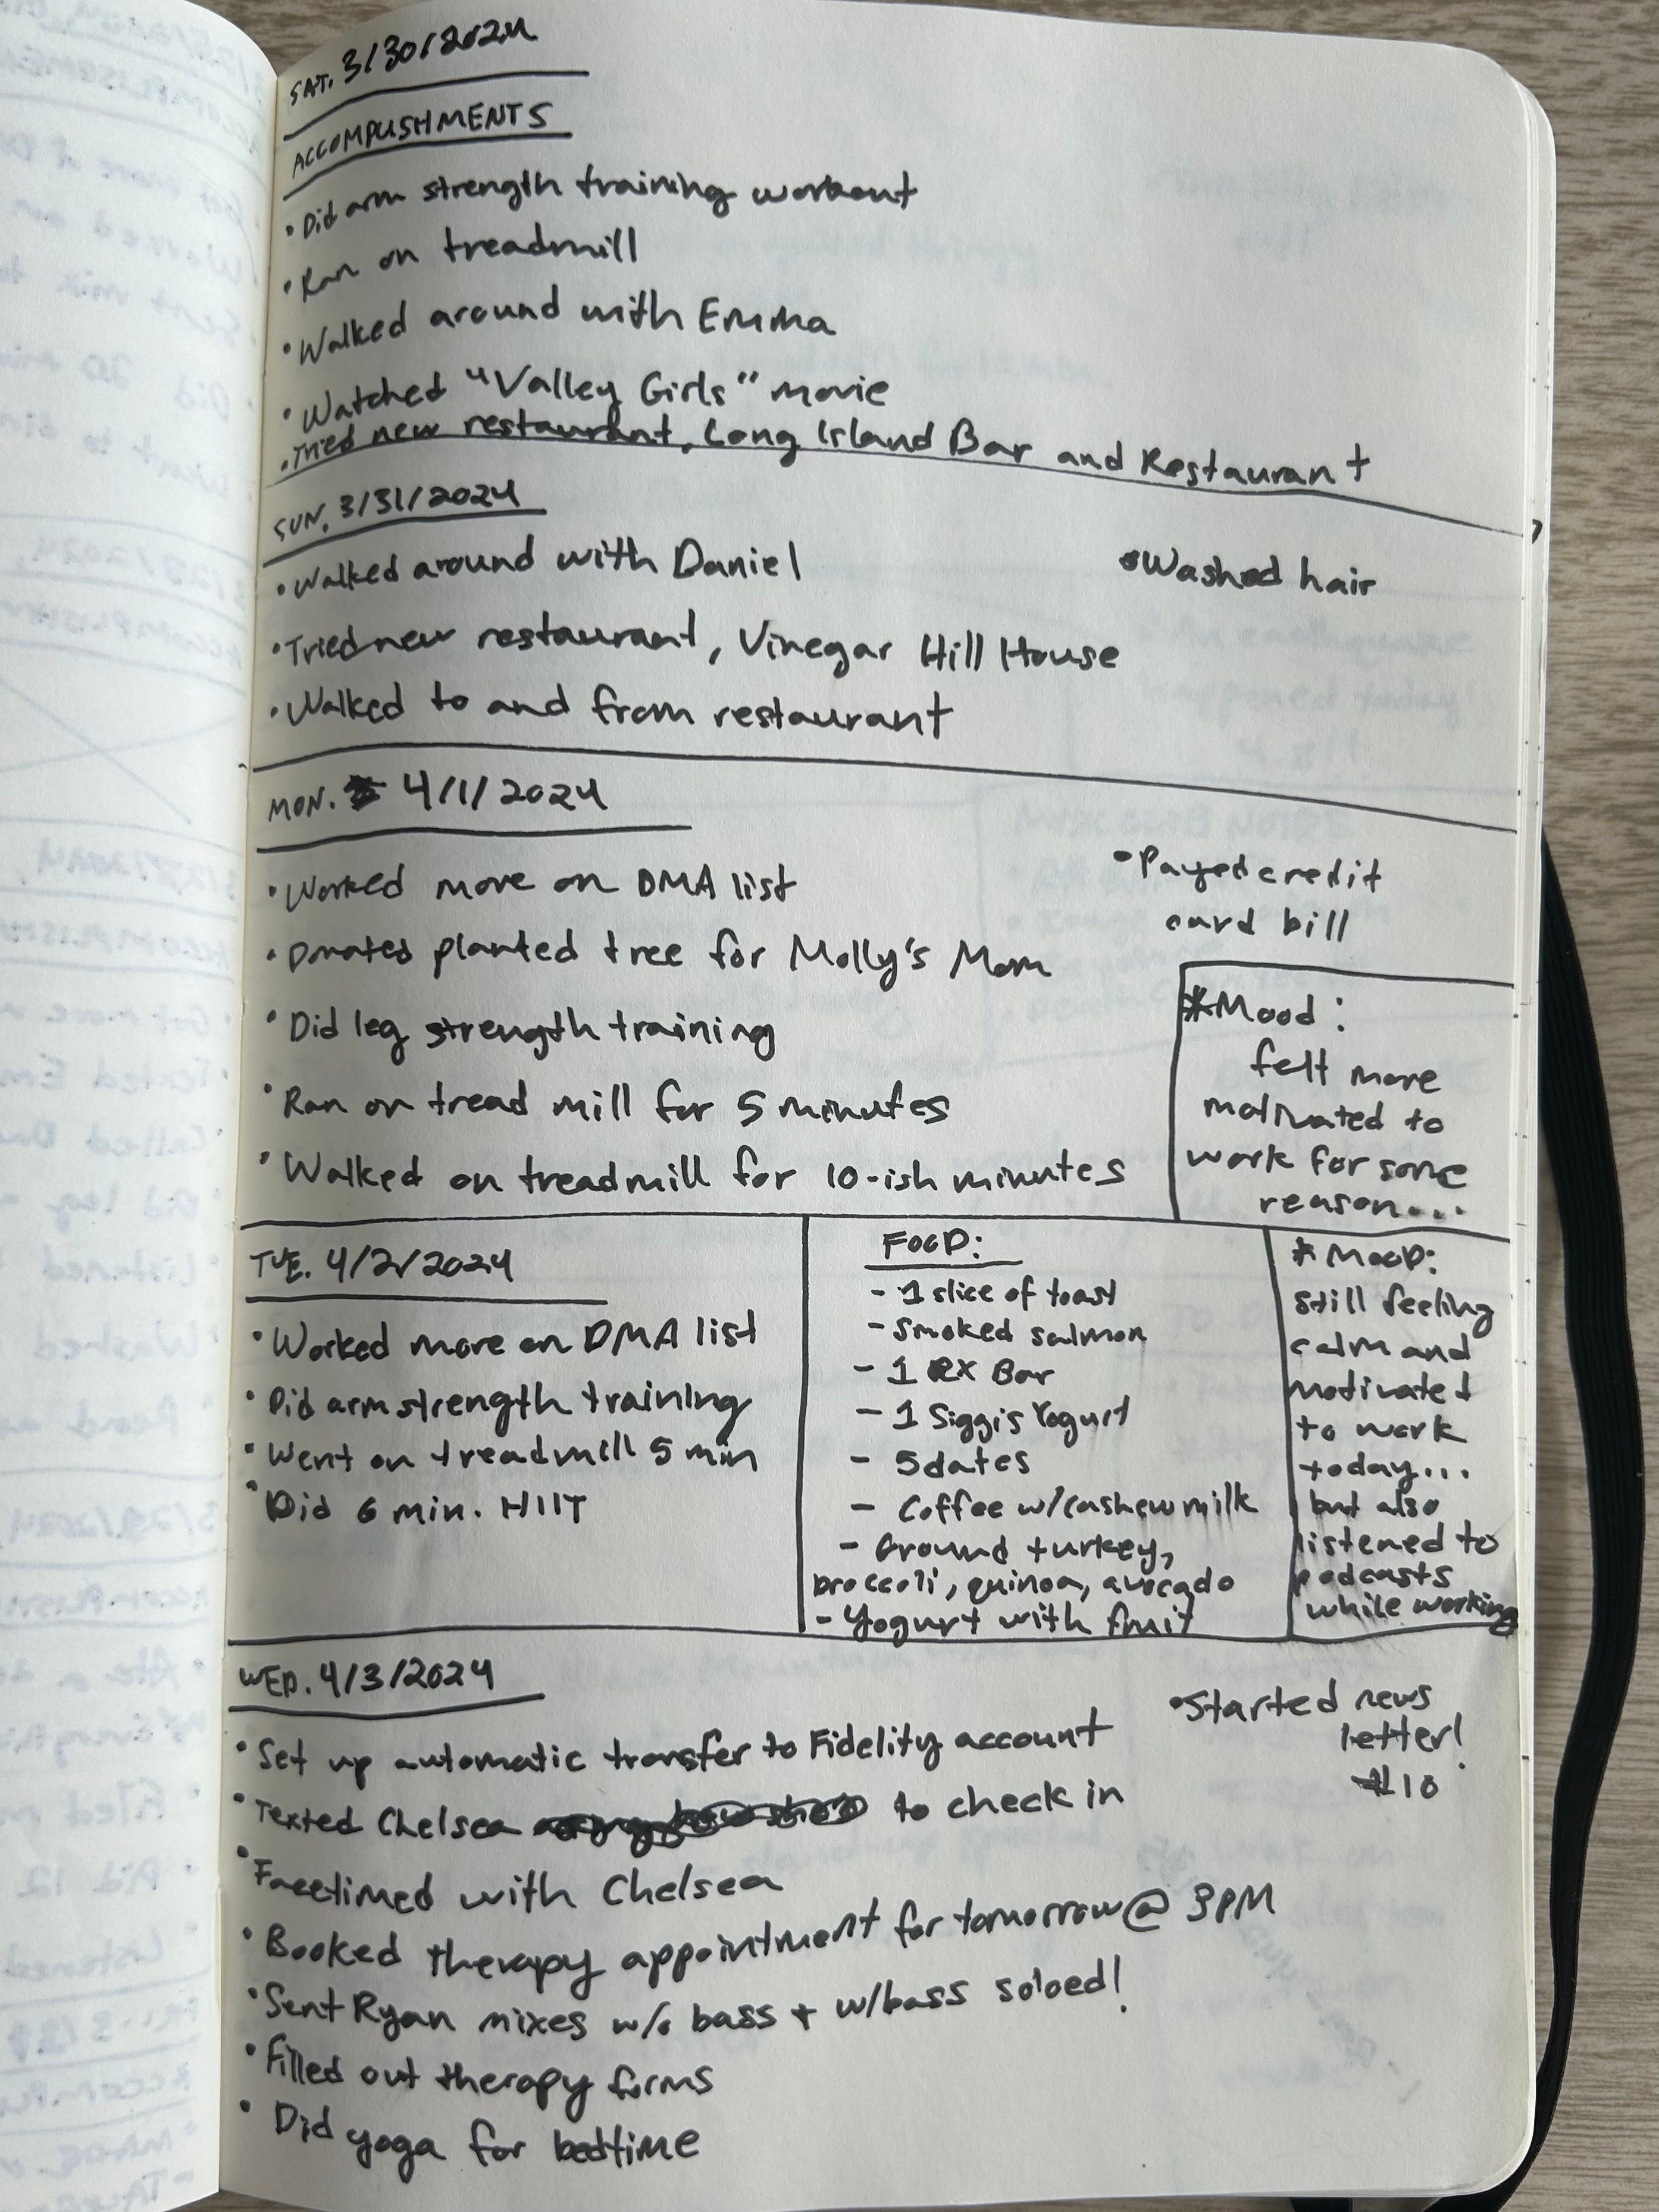 SAT. 3/30/2024
ACCOMPLISHMENTS
• Did arm strength training workout
• Ran on treadmill
• Walked around with Emma
• Watched "Valley Girls" movie
• Tried new restaurant, Long Island Bar and Restaurant
SUN. 3/31/2024
• Walked around with Daniel
• Tried new restaurant, Vinegar Hill House
• Walked to and from restaurant
• Washed hair
MON. 4/1/2024
• Worked more on DMA list
• Donated planted tree for Molly's Mom
• Did leg strength training
• Ran on tread mill for 5 minutes
• Walked on treadmill for 10-ish minutes
• Payed credit
card bill
*Mood:
felt more
motivated to
work for some
reason...
TUE. 4/2/2024
• Worked more on DMA list
• Did arm strength training
• Went on treadmill 5 min
• Did 6 min. HIIT
FOOD:
- 1 slice of toast
- Smoked salmon
- 1 RX Bar
- 1 Siggis Yogurt
- 5 dates
- Coffee w/cashew milk
- Ground turkey,
broccoli, quinoa, avocado
- Yogurt with fruit
* MOOD:
still feeling
calm and
motivated
to work
today...
but also
listened to
podcasts
while working
WED. 4/3/2024
• Set up automatic transfer to Fidelity account
• Texted Chelsea to check in
• Facetimed with Chelsea
• Booked therapy appointment for tomorrow @ 3PM
• Sent Ryan mixes w/o bass + w/bass soloed!
• Filled out therapy forms
• Did yoga for bedtime
• Started news
letter!
#10